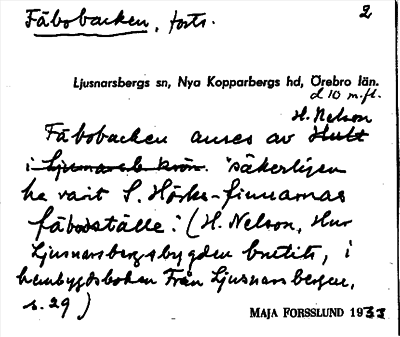 Fäbobacken, forts. 2
Ljusnarsbergs sn, Nya Kopparbergs hd, Örebro län.
d 10 m.fl.
H. Nelson
Fäbobacken anses av Hult
i Ljusnarsb. krön. "säkerligen
ha varit S. Hörks-finnarnas
fäboställe." (H. Nelson, Hur
Ljusnarsbergsbygden brutits, i
hembygdsboken Från Ljusnarsbergen,
s. 29)
MAJA FORSSLUND 1933